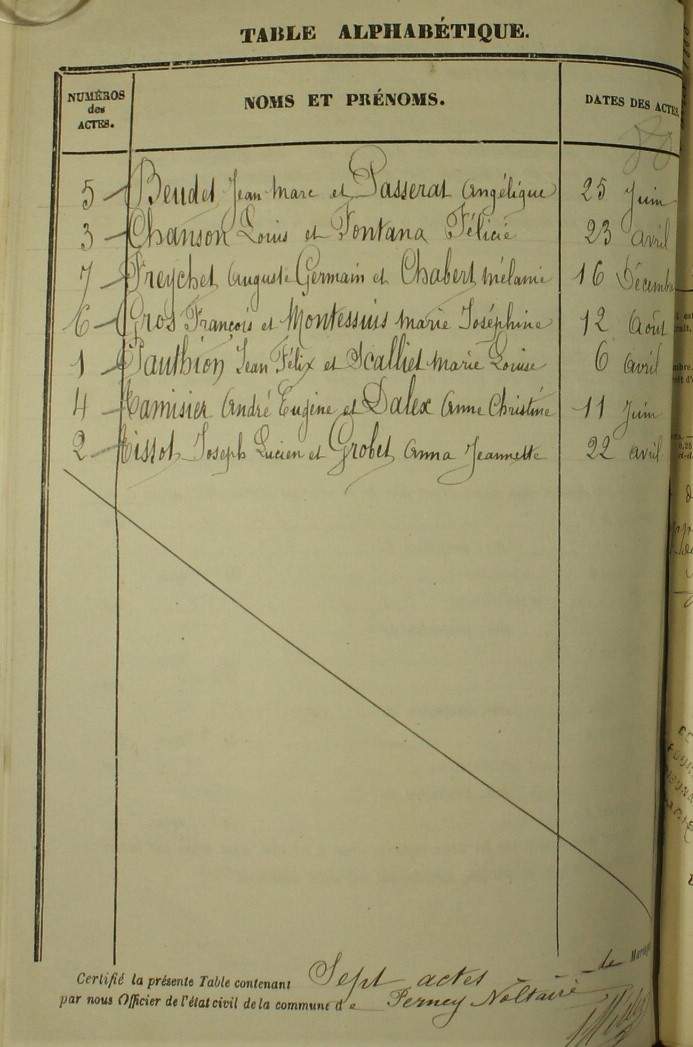 TABLE ALPHABÉTIQUE.
NUMÉROS des ACTES. NOMS ET PRÉNOMS. DATES DES ACTES
5 Beudet Jean Marc et Passerat Angélique 25 Juin
3 Chanson Louis et Fontana Félicie 23 avril
7 Freychet Auguste Germain et Chabert Mélanie 16 Décembre
6 Gros François et Montessuis Marie Joséphine 12 Août
1 Pauthion Jean Félix et Scalliet Marie Louise 6 avril
4 Tamisier André Eugène et Dalex Anne Christine 11 Juin
2 Tissot Joseph Lucien et Grobet Anna Jeannette 22 avril
Certifié la présente Table contenant Sept actes de
par nous Officier de l'état civil de la commune de Ferney Voltaire